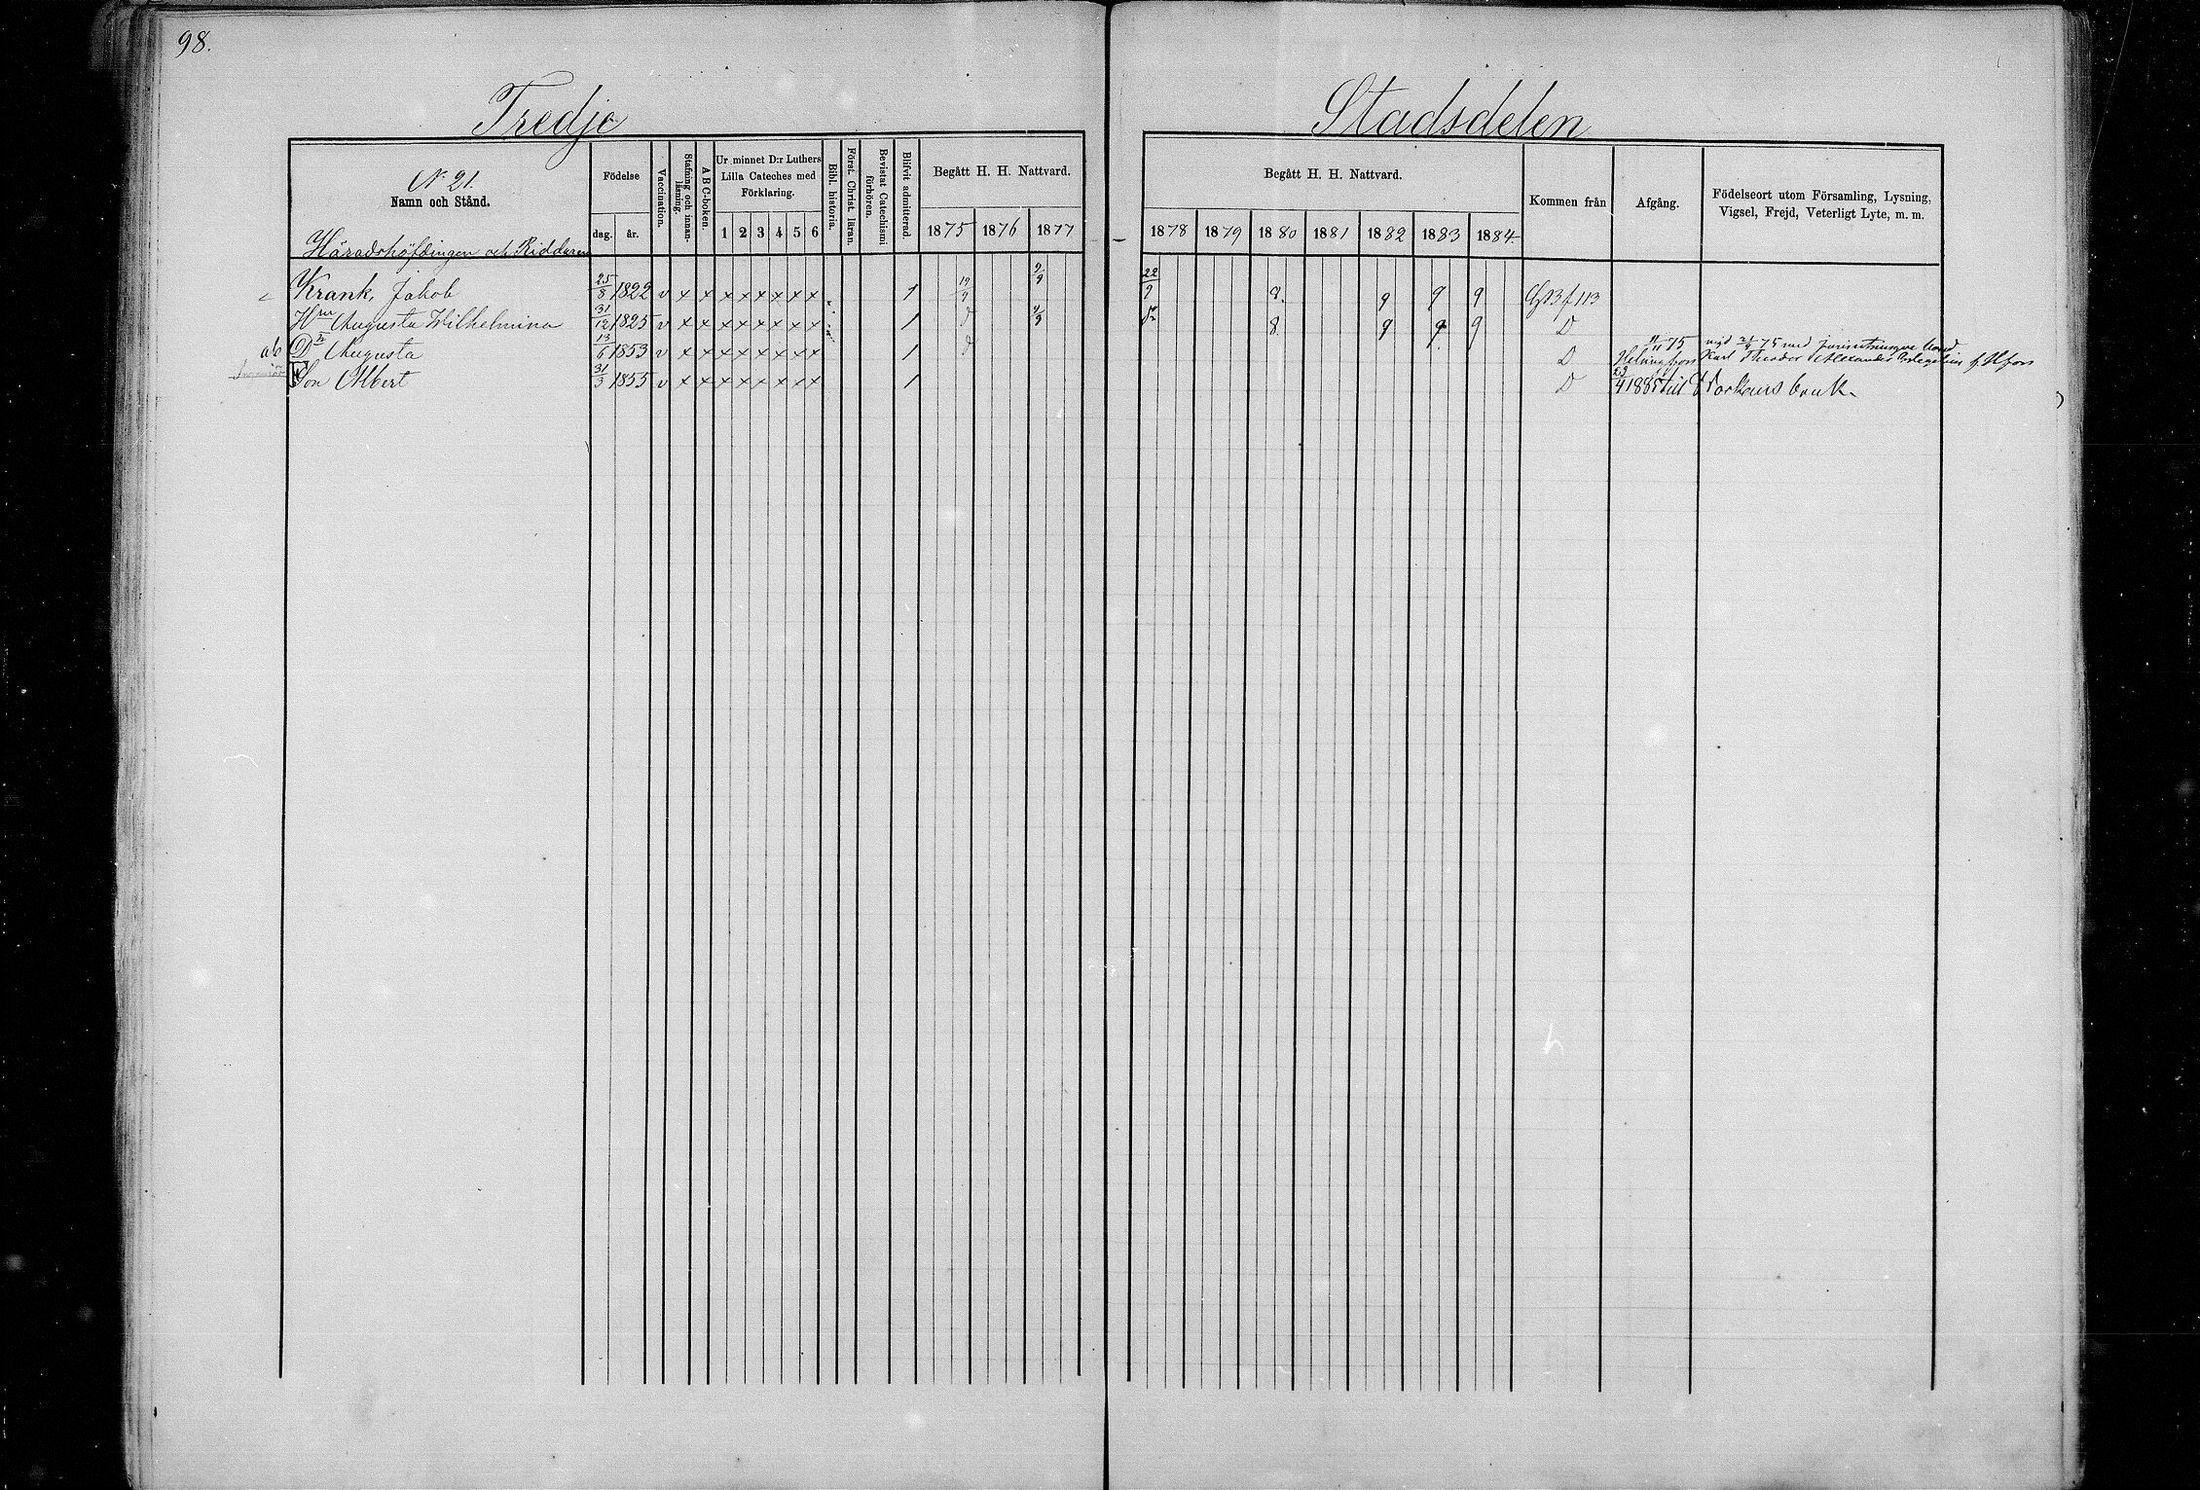 98.
Tredje Stadsdelen
N. 21.
Namn och Stånd.
Födelse
dag. år.
Vaccination.
Stafning och innanläsning.
A B C-boken.
Ur minnet D:r Luthers Lilla Cateches med Förklaring.
1 2 3 4 5 6
Bibl. historia.
Först. Christ. läran.
Bevistat Catechismi förhören.
Blifvit admitterad.
Begått H. H. Nattvard.
1875 1876 1877
Begått H. H. Nattvard.
1878 1879 1880 1881 1882 1883 1884
Kommen från
Afgång.
Födelseort utom Församling, Lysning, Vigsel, Frejd, Veterligt Lyte, m. m.
Häradshöfdingen och Riddaren
Krank, Jakob 25/8 1822 v x x x x x x x x 1 19/9 9/9 22/9 8. 9 9 9 GBf 113
Hru Augusta Wilhelmina 31/12 1825 v x x x x x x x x 1 d 9/9 8 9 9 9 D
ab Dr Augusta 13/6 1853 v x x x x x x x x 1 d D 11/11 75 Helsingfors vigd 2/9 75 med Karl Theodor Alexander f. Hfors
Son Albert 31/3 1855 v x x x x x x x x 1 D 23/4 1885 till Warkaus bruk.